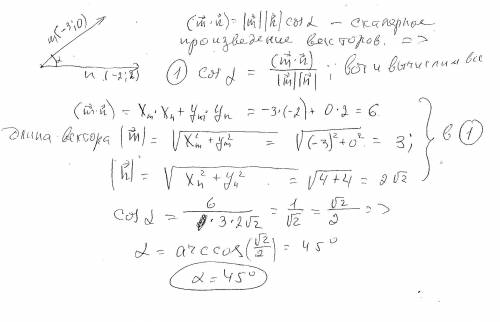 (m⃗·n⃗) = |m⃗||n⃗| cosα – скалярное
произведение векторов. =>
m(-3; 0)
α
n (-2; 2)
① cosα = (m⃗·n⃗) / |m⃗||n⃗| ; вот и вычислим все
(m⃗·n⃗) = xₘ·xₙ + yₘ·yₙ = -3·(-2) + 0·2 = 6
длина вектора |m⃗| = √(xₘ² + yₘ²) = √((-3)² + 0²) = 3;
|n⃗| = √(xₙ² + yₙ²) = √(4+4) = 2√2
} в ①
cosα = 6 / (3·2√2) = 1/√2 = √2/2 =>
α = arccos(√2/2) = 45°
α = 45°